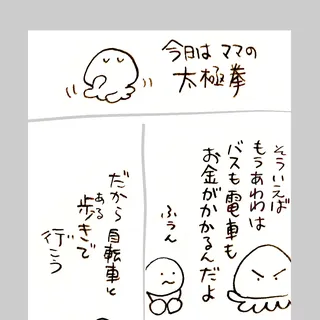 今日は ママの
太極拳
そういえば
もうあわわは
バスも電車も
お金がかかるんだよ
ふぅん
だから 自転車と
ある
歩きで
行こう